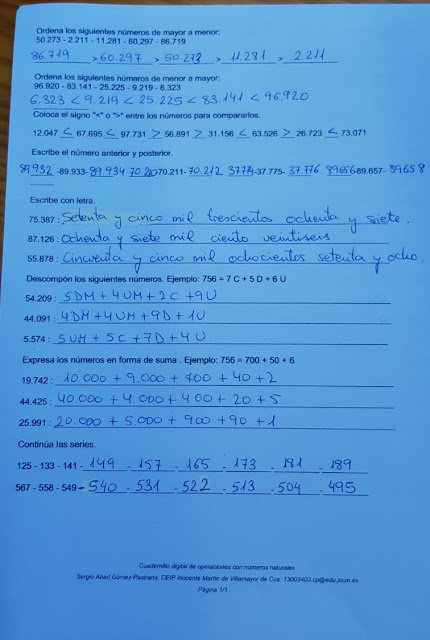 Ordena los siguientes números de mayor a menor:
50.273 - 2.211 - 11.281 - 60.297 - 86.719
86.719 > 60.297 > 50.273 > 11.281 > 2.211
Ordena los siguientes números de menor a mayor:
96.920 - 83.141 - 25.225 - 9.219 - 6.323
6.323 < 9.219 < 25.225 < 83.141 < 96920
Coloca el signo "<" o ">" entre los números para compararlos.
12.047 < 67.695 < 97.731 > 56.891 > 31.156 < 63.526 > 26.723 < 73.071
Escribe el número anterior y posterior.
89.932 -89.933- 89.934 70.210 70.211- 70.212 37.774 -37.775- 37.776 89.656 89.657- 89.658
Escribe con letra.
75.387 : Setenta y cinco mil trescientos ochenta y siete.
87.126 : Ochenta y siete mil ciento veintiseis
55.878 : Cincuenta y cinco mil ochocientos setenta y ocho.
Descompón los siguientes números. Ejemplo: 756 = 7 C + 5 D + 6 U
54.209 : 5DM + 4UM + 2C + 9U
44.091 : 4DM + 4UM + 9D + 1U
5.574 : 5UM + 5C + 7D + 4U
Expresa los números en forma de suma . Ejemplo: 756 = 700 + 50 + 6
19.742 : 10.000 + 9.000 + 700 + 40 + 2
44.425 : 40.000 + 4.000 + 400 + 20 + 5
25.991 : 20.000 + 5.000 + 900 + 90 + 1
Continúa las series.
125 - 133 - 141 - 149 - 157 - 165 - 173 - 181 - 189
567 - 558 - 549 - 540 - 531 - 522 - 513 - 504 - 495
Cuadernillo digital de operaciones con números naturales.
Sergio Abad Gómez-Pastrana. CEIP Inocente Martín de Villamayor de Cva. 13003403.cp@edu.jccm.es
Página 1/1